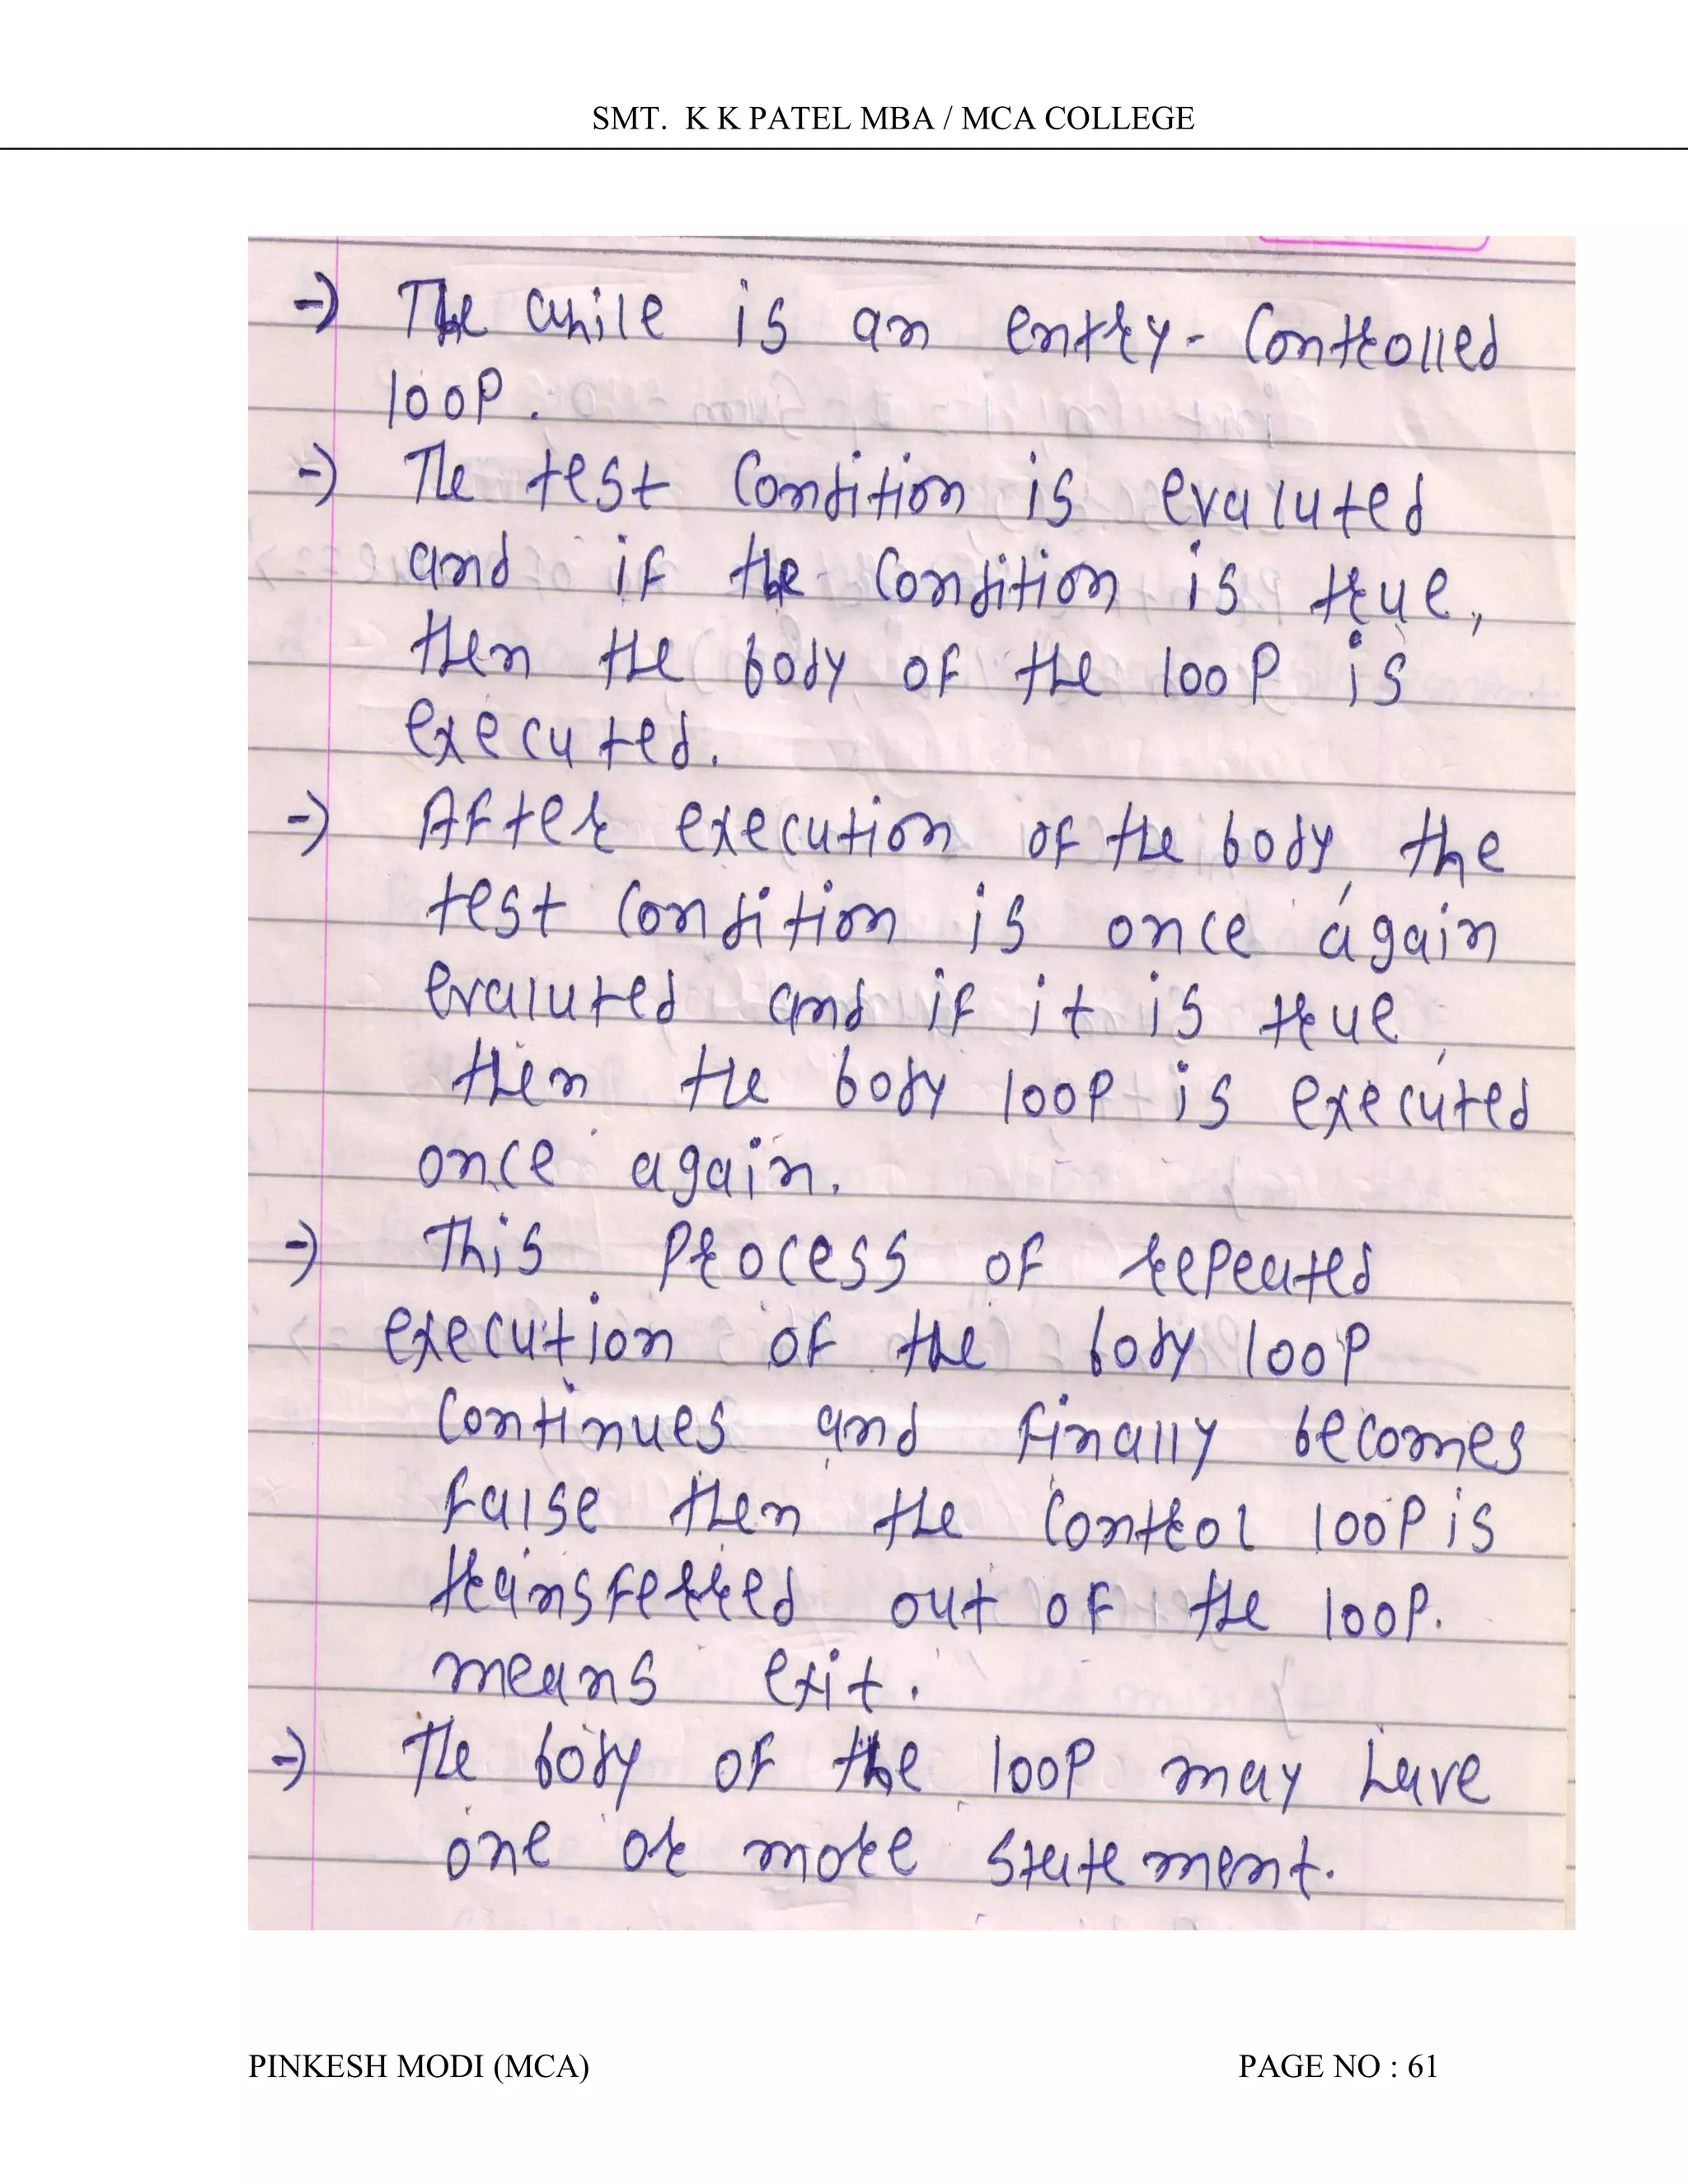 SMT. K K PATEL MBA / MCA COLLEGE
-) The while is an entry-Controlled
loop.
-) The test Condition is evaluted
and if the Condition is true,
then the body of the loop is
executed.
-) After execution of the body, the
test Condition is once again
evaluted and if it is true,
then the body loop is executed
once again.
-) This Process of repeated
execution of the body loop
Continues and finally becomes
false then the Control loop is
transferred out of the loop.
means exit.
-) The body of the loop may have
one or more statement.
PINKESH MODI (MCA) PAGE NO : 61